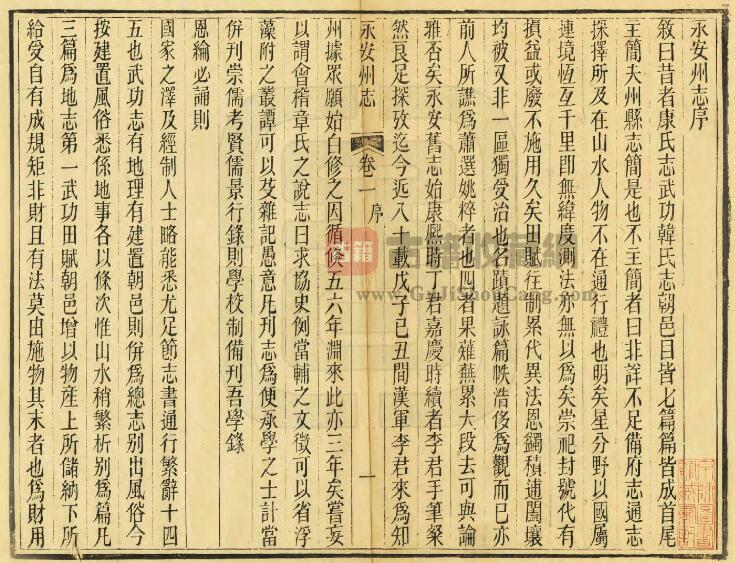 永安州志序
敘曰昔者康氏志武功韓氏志朝邑目皆七篇篇皆成首尾
主簡夫州縣志簡是也不主簡者曰非詳不足備府志通志
採擇所及在山水人物不在通行禮也明矣星分野以國屬
連境恆互千里即無緯度測法亦無以為矣崇祀封號代有
損益或廢不施用久矣田賦往制累代異法恩蠲積逋闔壤
均被又非一區獨受治也名蹟題詠篇帙浩侈為觀而已亦
前人所譙為蕭選姚粹者也四者果薙蕪累大段去可與論
雅否矣永安舊志始康熙時丁君嘉慶時續者李君手筆粲
然良足探攷迄今近八十載戊子己丑間漢軍李君來為知
永安州志
卷一
序
一
州據眾願始白修之因循倐五六年淵來此亦三年矣嘗妄
以謂會稽章氏之說志曰求協史例當輔之文徵可以省浮
藻附之叢譚可以芟雜記愚意凡刊志為便承學之士計當
併刊崇儒考賢儒景行錄則學校制備刊吾學錄
恩綸必誦則
國家之澤及經制人士略能悉尤足節志書通行繁辭十四
五也武功志有地理有建置朝邑則併為總志別出風俗今
按建置風俗悉係地事各以條次惟山水稍繁析別為篇凡
三篇為地志第一武功田賦朝邑增以物產上所儲納下所
給受自有成規矩非財且有法莫由施物其末者也為財用
古籍收藏网
www.GuJiShouCang.com